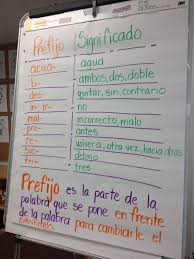 Prefijo Significado
acua- agua
bi- ambos, dos, doble
des- quitar, sin, contrario
in- im- no
mal- incorrecto, malo
pre- antes
re- volver a, otra vez, hacia atras
sub- debajo
tri- tres
Prefijo es la parte de la
palabra que se pone en frente
de la palabra para cambiarle el
significado